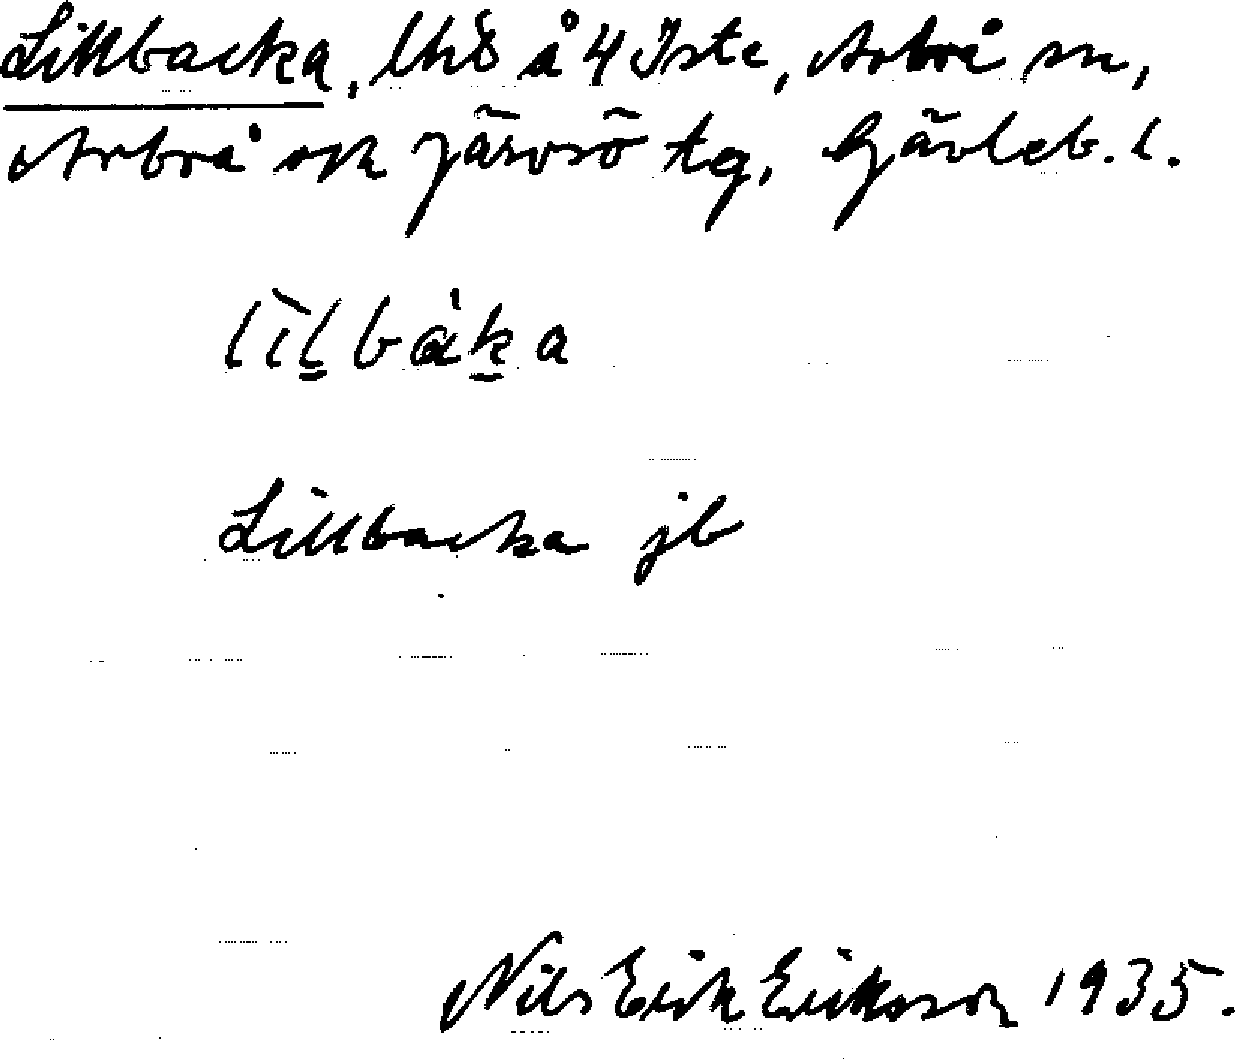 Lillbacka, lhs å 4 Iste, Arbrå sn,
Arbrå och Järvsö tg, Gävleb. l.
lìlbàka
Lillbacka jb
Nils Erik Eriksson 1935.